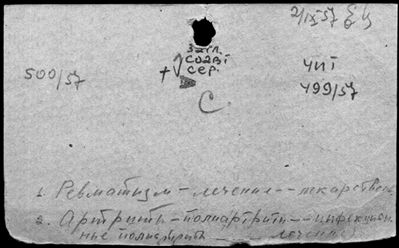 2/IX 57
500/57
загл.
сер.
С
ЧИТ
499/57
1. Ревматизм – лечение – лекарствен
2. Артриты – полиартриты – инфекцион
ные полиартриты – лечение